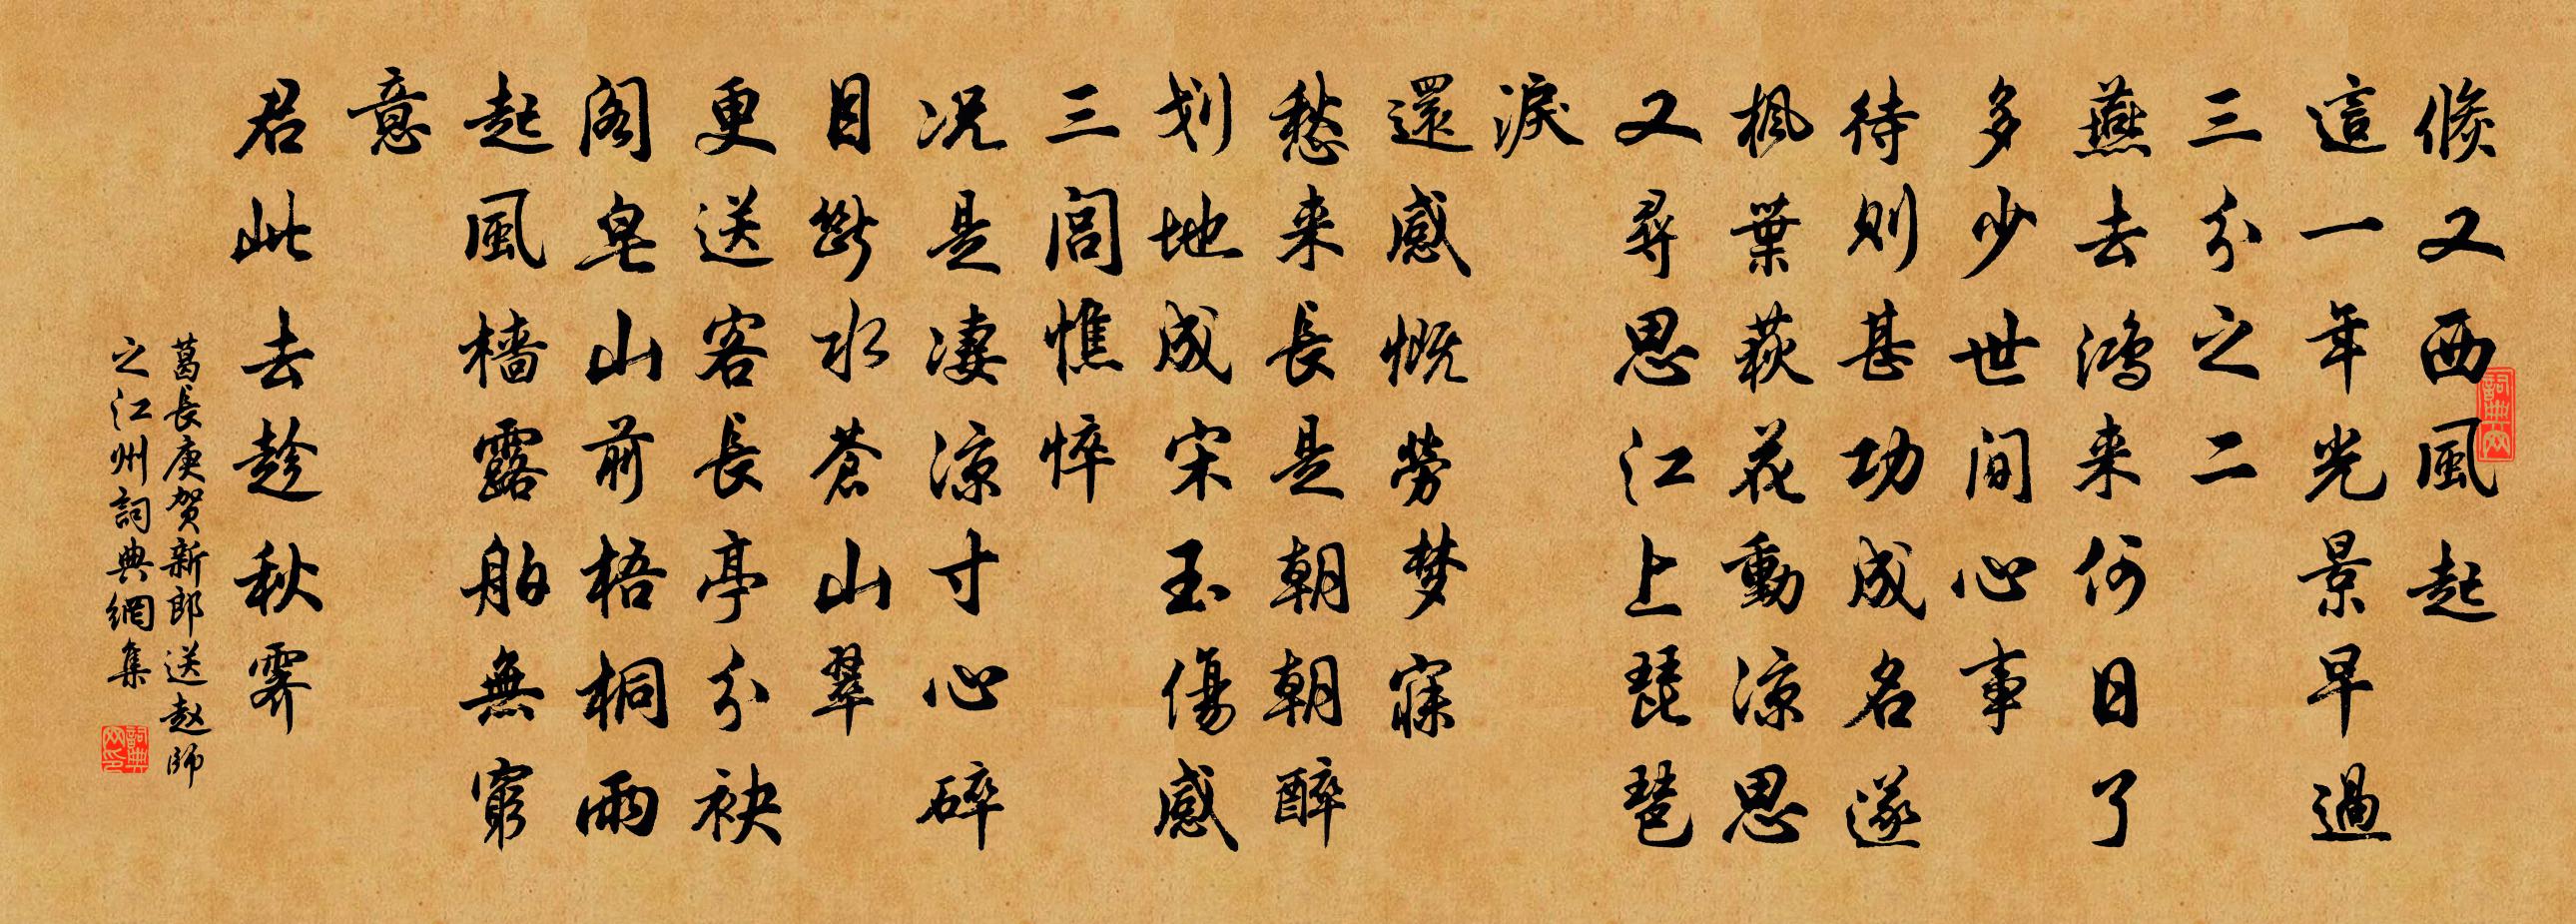 倏又西風起
這一年光景早過
三分之二
燕去鴻来何日了
多少世间心事
待则甚功成名遂
枫葉荻花動凉思
又尋思江上琵琶
淚
還感慨劳梦寐
愁来長是朝朝醉
划地成宋玉傷感
三閭憔悴
况是凄凉寸心碎
目断水蒼山翠
更送客長亭分袂
阁皂山前梧桐雨
起風樯露舶無窮
意
君此去趁秋霁
葛長庚贺新郎送赵師
之江州詞典網集
詞典网
詞典网印